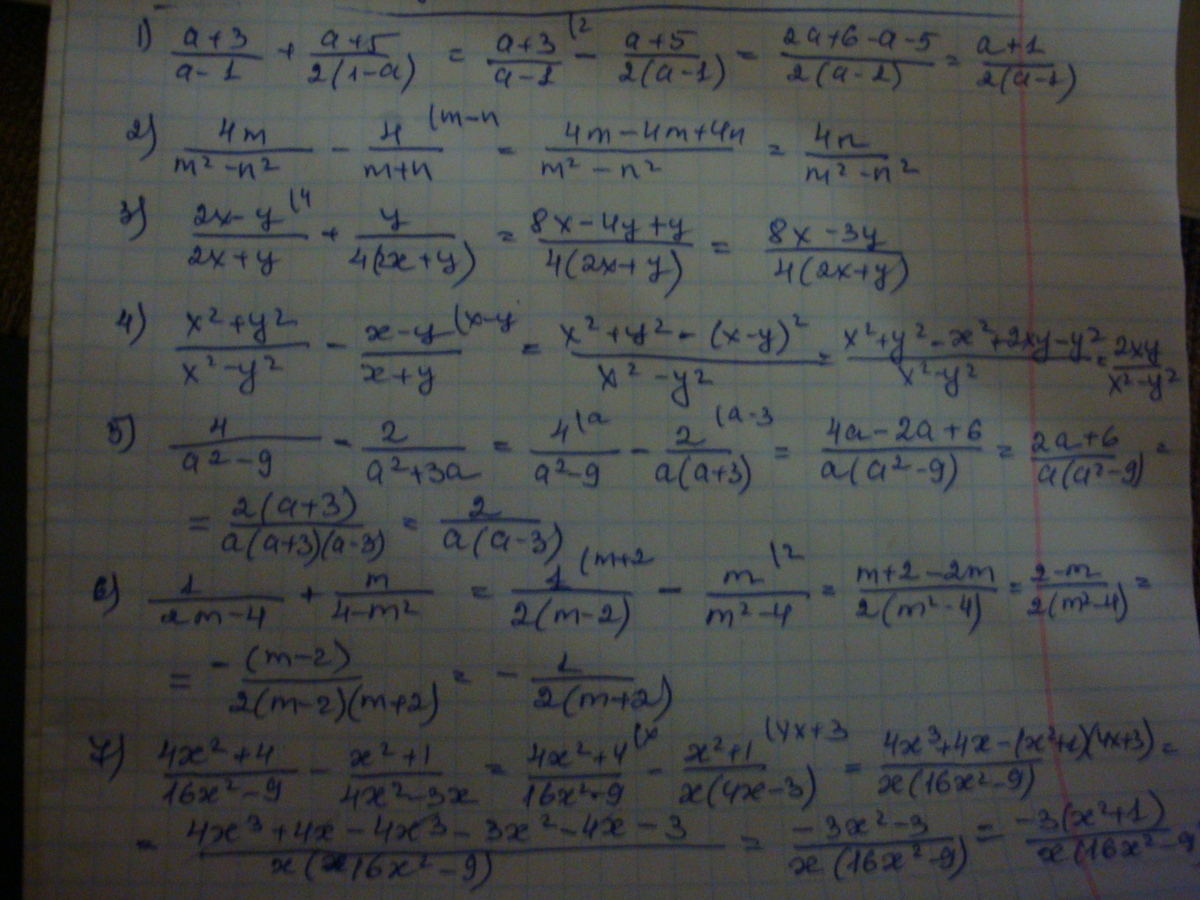 1) (a+3)/(a-1) + (a+5)/(2(1-a)) = (a+3)/(a-1) (2 - (a+5)/(2(a-1)) = (2a+6-a-5)/(2(a-1)) = (a+1)/(2(a-1))
2) 4m/(m²-n²) - 4/(m+n) (m-n = (4m-4m+4n)/(m²-n²) = 4n/(m²-n²)
3) (2x-y)/(2x+y) (4 + y/(4(2x+y)) = (8x-4y+y)/(4(2x+y)) = (8x-3y)/(4(2x+y))
4) (x²+y²)/(x²-y²) - (x-y)/(x+y) (x-y = (x²+y²-(x-y)²)/(x²-y²) = (x²+y²-x²+2xy-y²)/(x²-y²) = 2xy/(x²-y²)
5) 4/(a²-9) - 2/(a²+3a) = 4/(a²-9) (a - 2/(a(a+3)) (a-3 = (4a-2a+6)/(a(a²-9)) = (2a+6)/(a(a²-9)) =
= 2(a+3)/(a(a+3)(a-3)) = 2/(a(a-3))
6) 1/(2m-4) + m/(4-m²) = 1/(2(m-2)) (m+2 - m/(m²-4) (2 = (m+2-2m)/(2(m²-4)) = (2-m)/(2(m²-4)) =
= -(m-2)/(2(m-2)(m+2)) = - 1/(2(m+2))
7) (4x²+4)/(16x²-9) - (x²+1)/(4x²-3x) = (4x²+4)/(16x²-9) (x - (x²+1)/(x(4x-3)) (4x+3 = (4x³+4x-(x²+1)(4x+3))/(x(16x²-9)) =
= (4x³+4x-4x³-3x²-4x-3)/(x(16x²-9)) = (-3x²-3)/(x(16x²-9)) = -3(x²+1)/(x(16x²-9